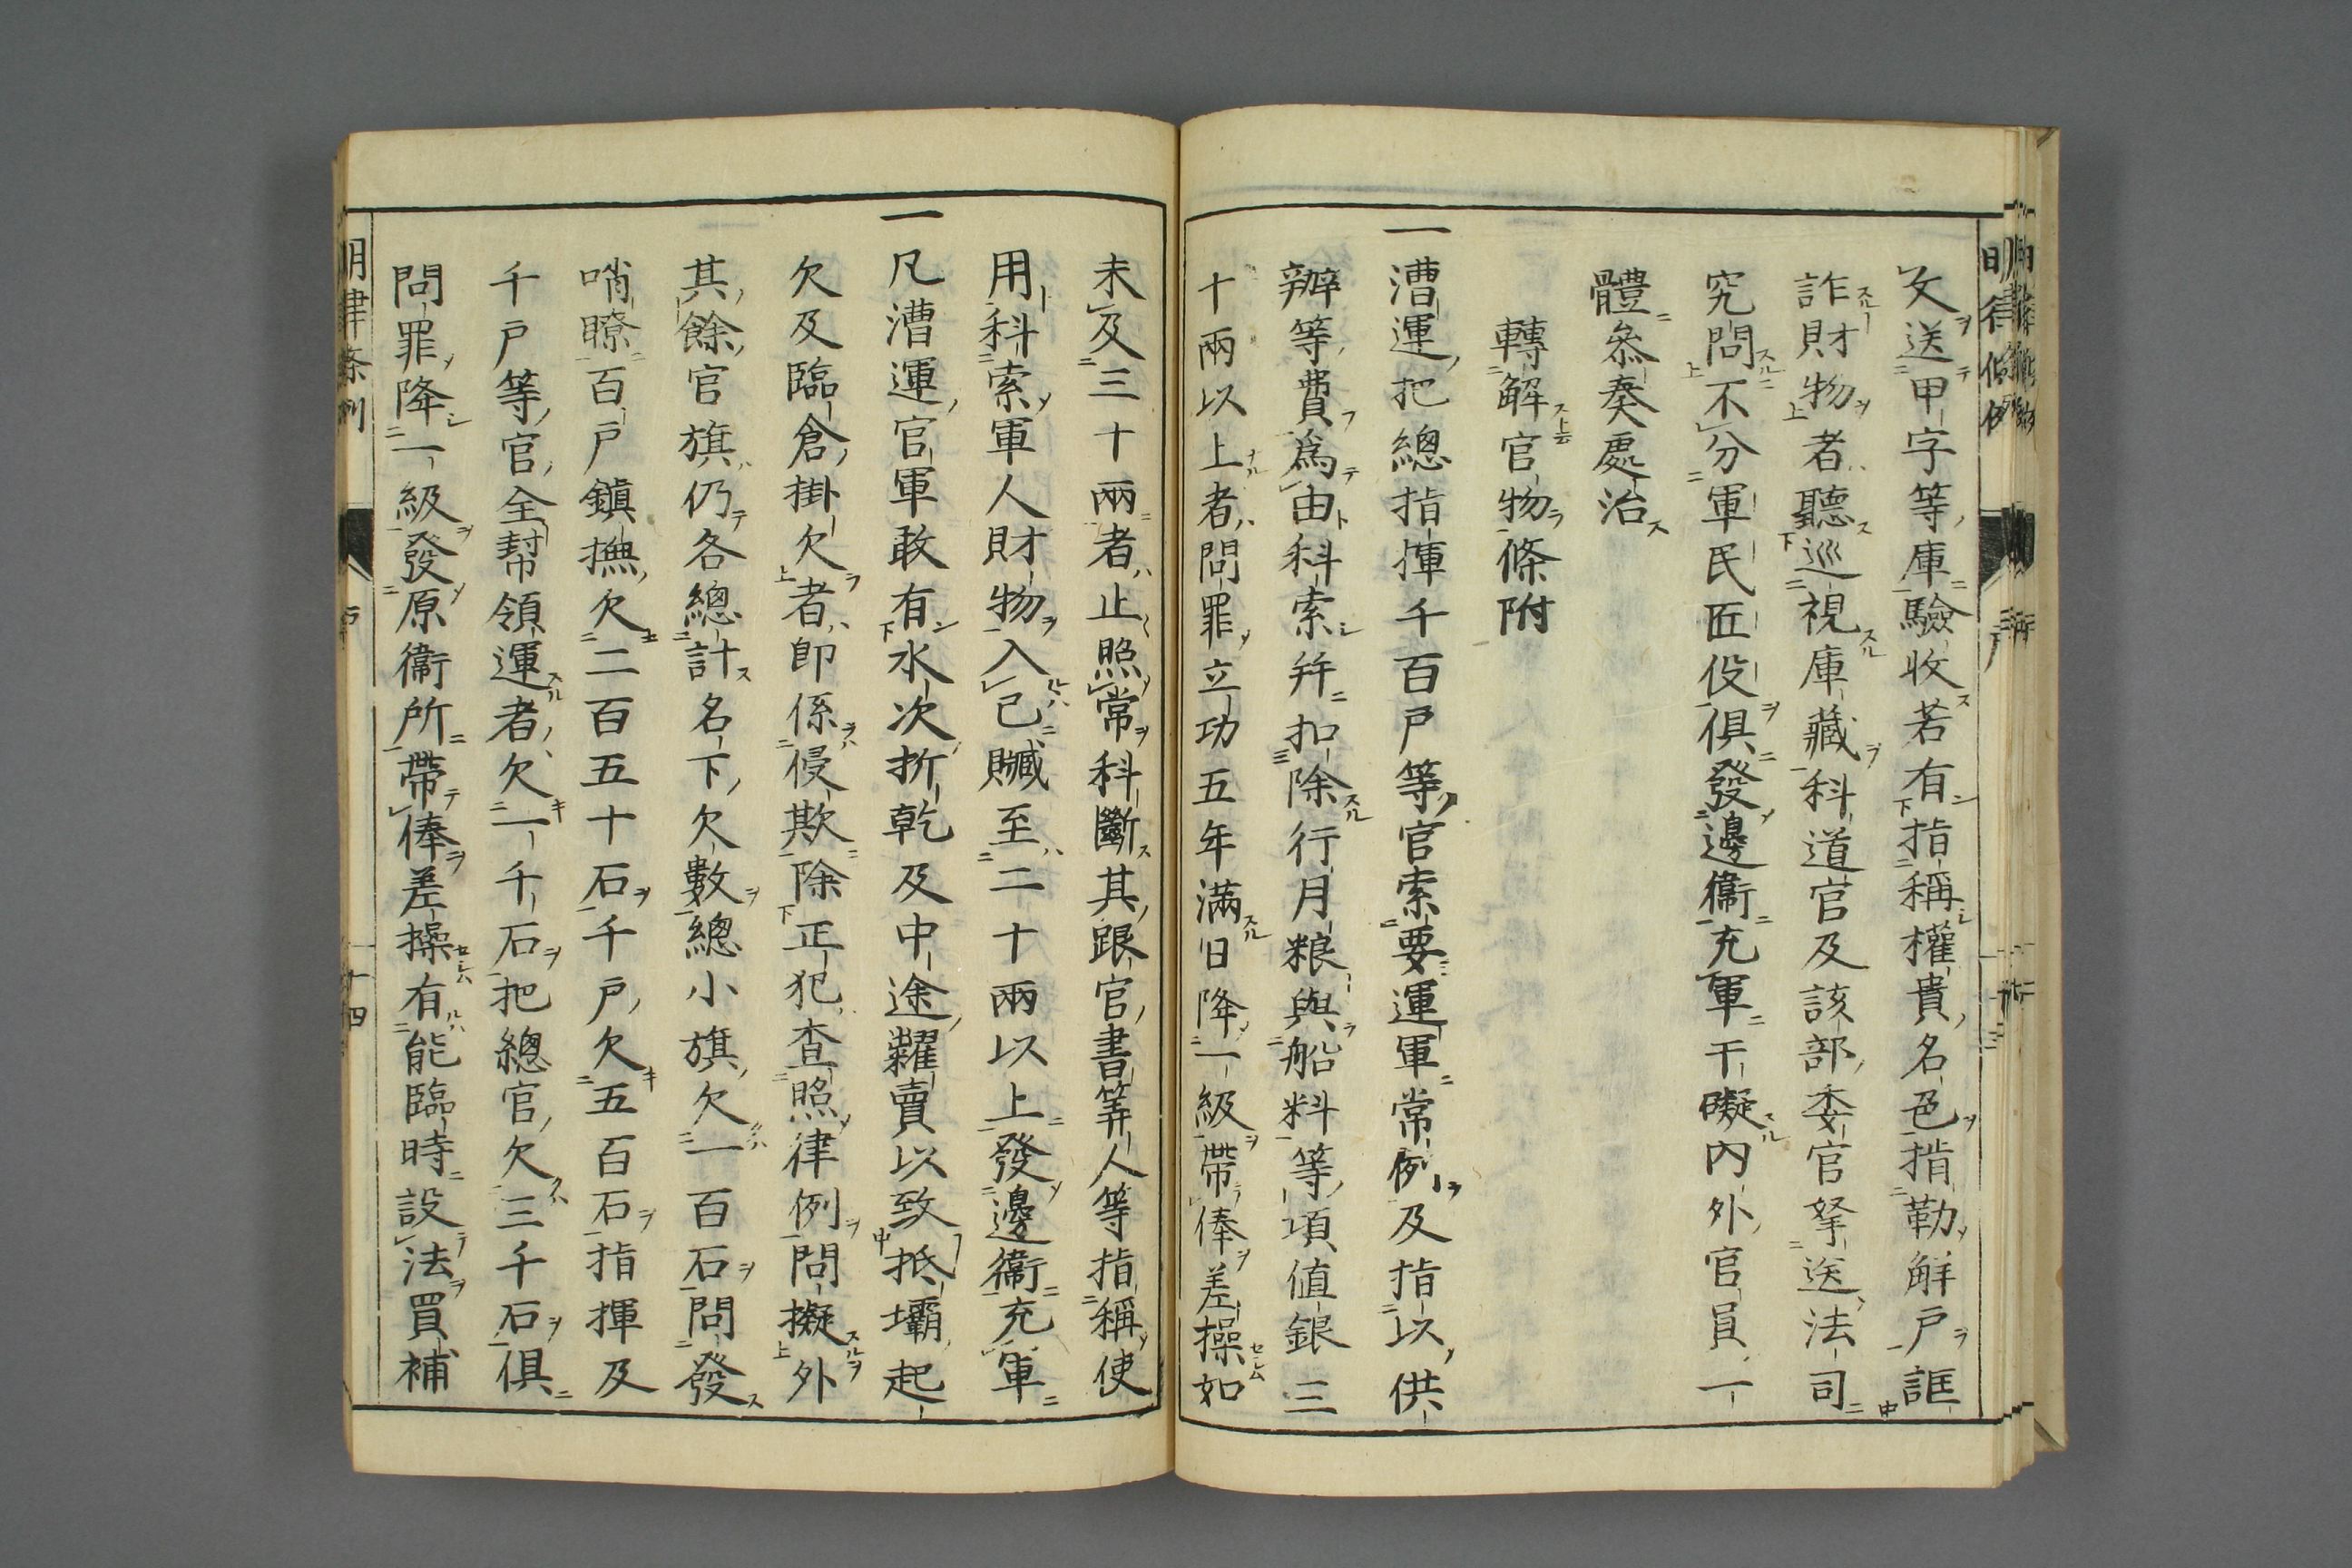 文送甲字等庫驗收若有指稱權貴名色掯勒解戶誆
詐財物者聽巡視庫藏科道官及該部委官拏送法司
究問不分軍民匠役俱發邊衞充軍干礙內外官員一
體叅奏處治
轉解官物條附
一漕運把總指揮千百戶等官索要運軍常例及指以供
辦等費爲由科索并扣除行月粮與船料等項値銀三
十兩以上者問罪立功五年滿日降一級帶俸差操如
未及三十兩者止照常科斷其跟官書筭人等指稱使
用科索軍人財物入己贓至二十兩以上發邊衞充軍
一凡漕運官軍敢有水次折乾及中途糶賣以致抵壩起
欠及臨倉掛欠者卽係侵欺除正犯查照律例問擬外
其餘官旗仍各總計名下欠數總小旗欠一百石問發
哨瞭百戶鎭撫欠二百五十石千戶欠五百石指揮及
千戶等官全幇領運者欠一千石把總官欠三千石俱
問罪降一級發原衞所帶俸差操有能臨時設法買補
明律条例
戶
十四